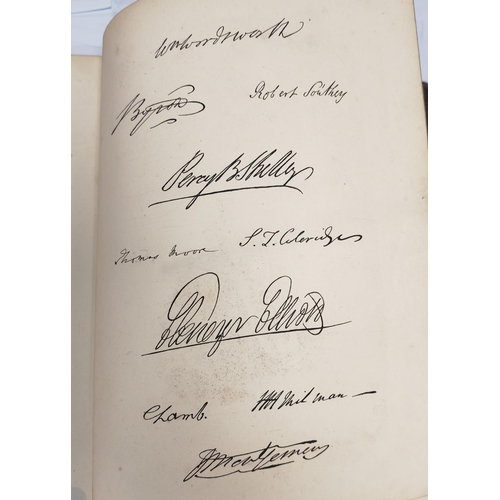 Wm Wordsworth
Byron
Robert Southey
Percy B Shelley
Thomas Moore
S. T. Coleridge
Ebenezer Elliott
C Lamb.
HH Milman
J Montgomery